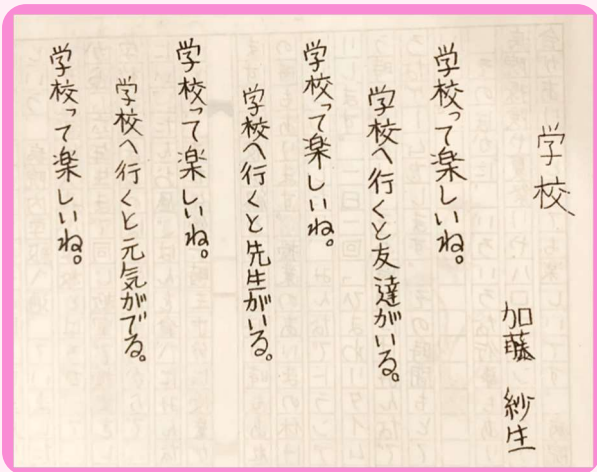 学校
加藤 紗生
学校って楽しいね。
学校へ行くと友達がいる。
学校って楽しいね。
学校へ行くと先生がいる。
学校って楽しいね。
学校へ行くと元気がでる。
学校って楽しいね。